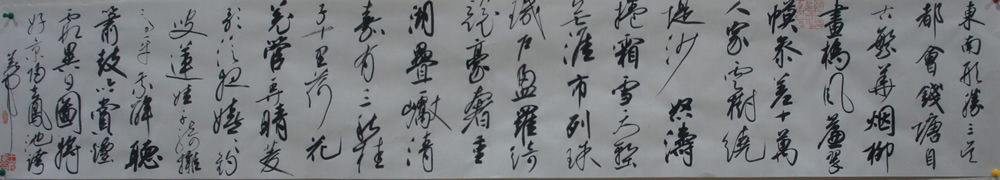 東南形勝三吴
都會錢塘自
古繁華烟柳
畫橋風簾翠
幙參差十萬
人家雲樹繞
堤沙怒濤
捲霜雪天塹
無涯市列珠
璣户盈羅綺
競豪奢重
湖疊巘清
嘉有三秋桂
子十里荷花
羌管弄晴菱
歌泛夜嬉々釣
叟蓮娃千騎擁
高牙乘醉聽
簫鼓吟賞煙
霞異日圖將
好景歸鳳池誇